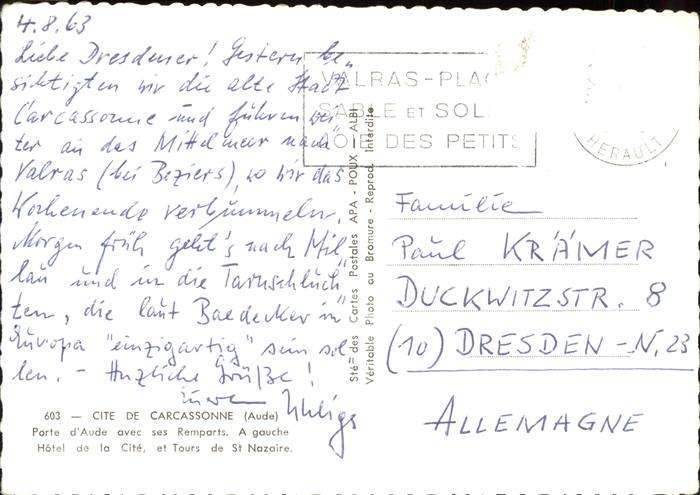 4.8.63
Liebe Dresdener! Gestern be„
sichtigten wir die alte Stadt
Carcassonne und fuhren wei„
ter an das Mittelmeer nach
Valras (bei Beziers), wo wir das
Wochenende verbummeln.
Morgen früh geht's nach Mil„
lau und in die Tarnschluch„
ten, die laut Baedecker in
Europa "einzigartig" sein sol„
len. - Herzliche Grüße!
603 — CITE DE CARCASSONNE (Aude)
Porte d'Aude avec ses Remparts. A gauche
Hôtel de la Cité, et Tours de St Nazaire.
VALRAS-PLA
SABLE ET SOL
JOIE DES PETITS
HERAULT
Sté des Cartes Postales APA - POUX - ALBI
Véritable Photo au Bromure - Reprod. Interdite
Familie
Paul KRÄMER
DUCKWITZSTR. 8
(10) DRESDEN-N. 23
ALLEMAGNE